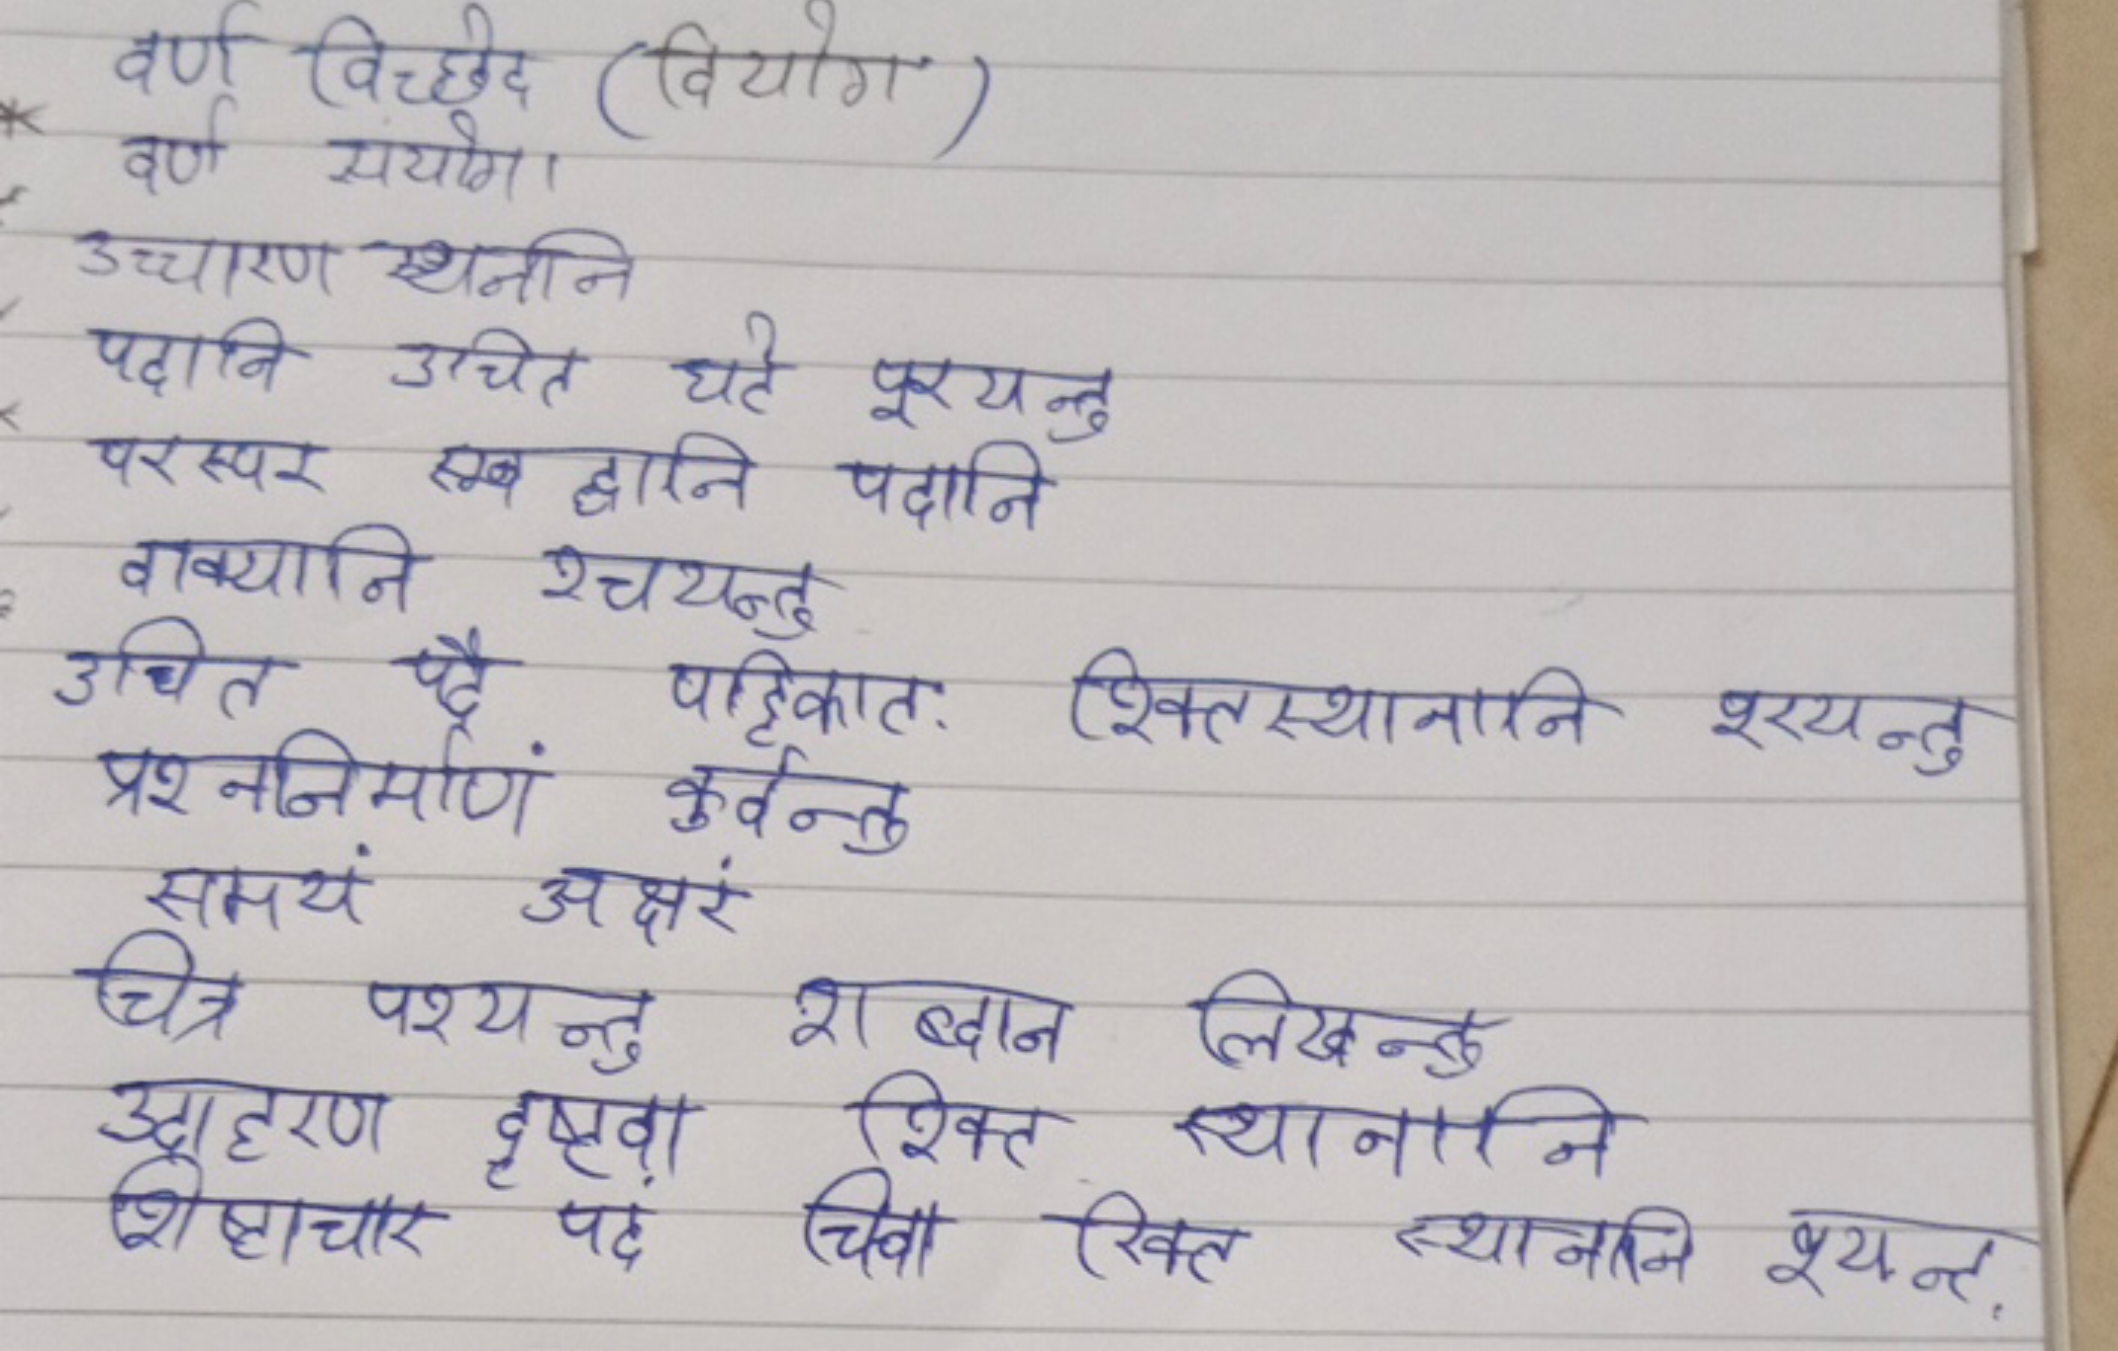 वर्ण विच्छेद (वियोग)
वर्ण संयोग।
उच्चारण स्थनानि
पदानि उचित घटे पूरयन्तु
परस्पर सम्ब द्धानि पदानि
वाक्यानि रचयन्तु
उचित पदै पट्टिकातः रिक्तस्थानानि पूरयन्तु
प्रश्ननिर्माणं कुर्वन्तु
समयं अक्षरं
चित्र पश्यन्तु शब्दान लिखन्तु
उदाहरण दृष्टवा रिक्त स्थानानि
शिष्टाचार पदं चिवा रिक्त स्थानानि